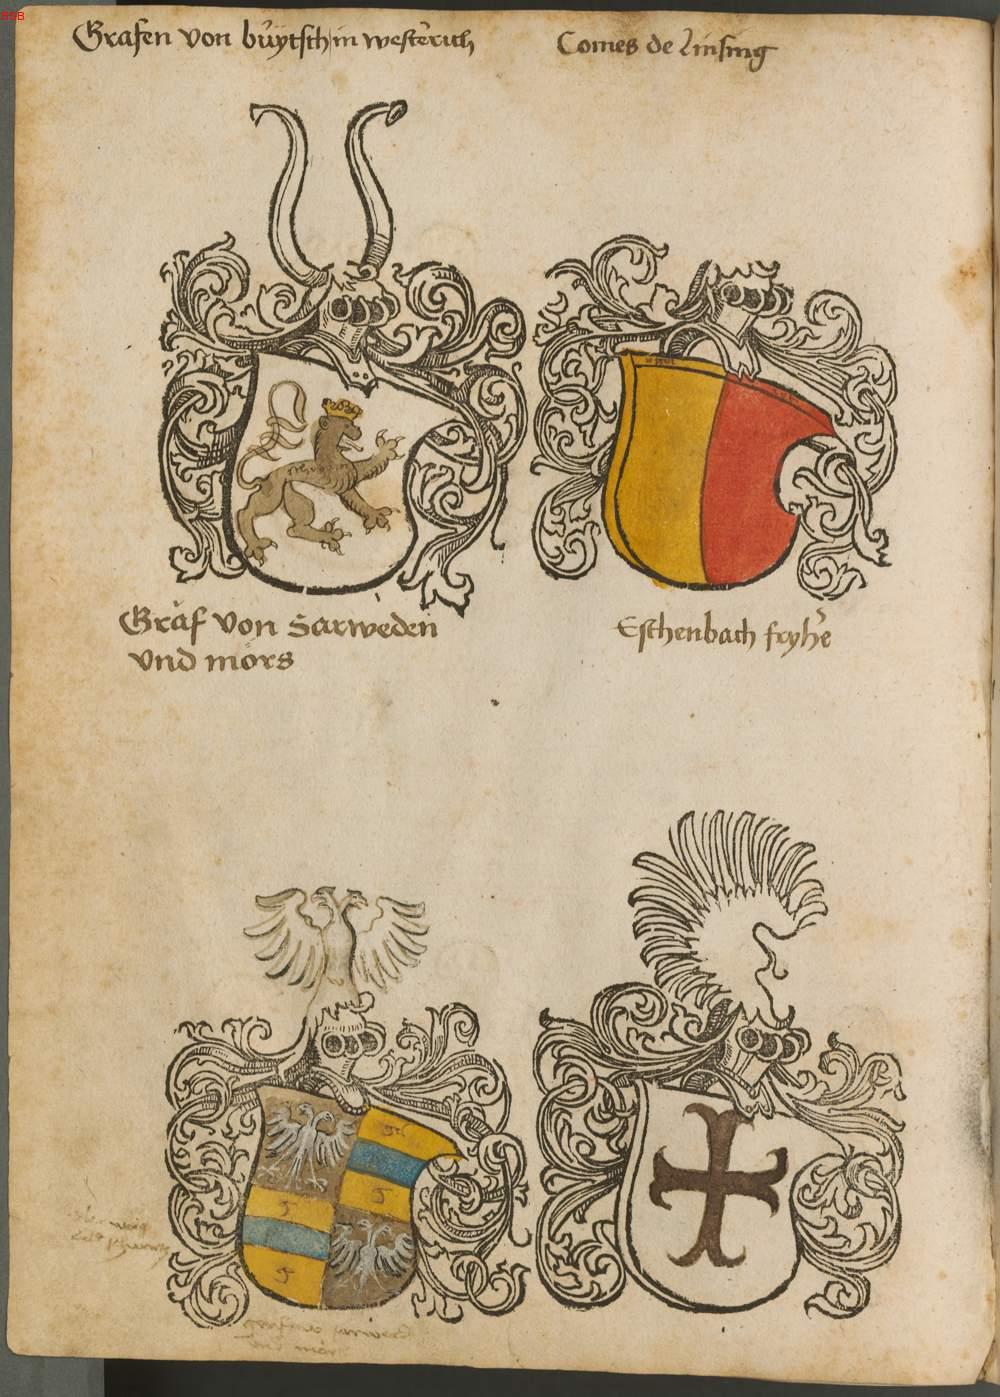 Grafen von bůytsch in westerich
Comes de Linsing
Graf von Sarweden
vnd mörs
Eschenbach fryhe